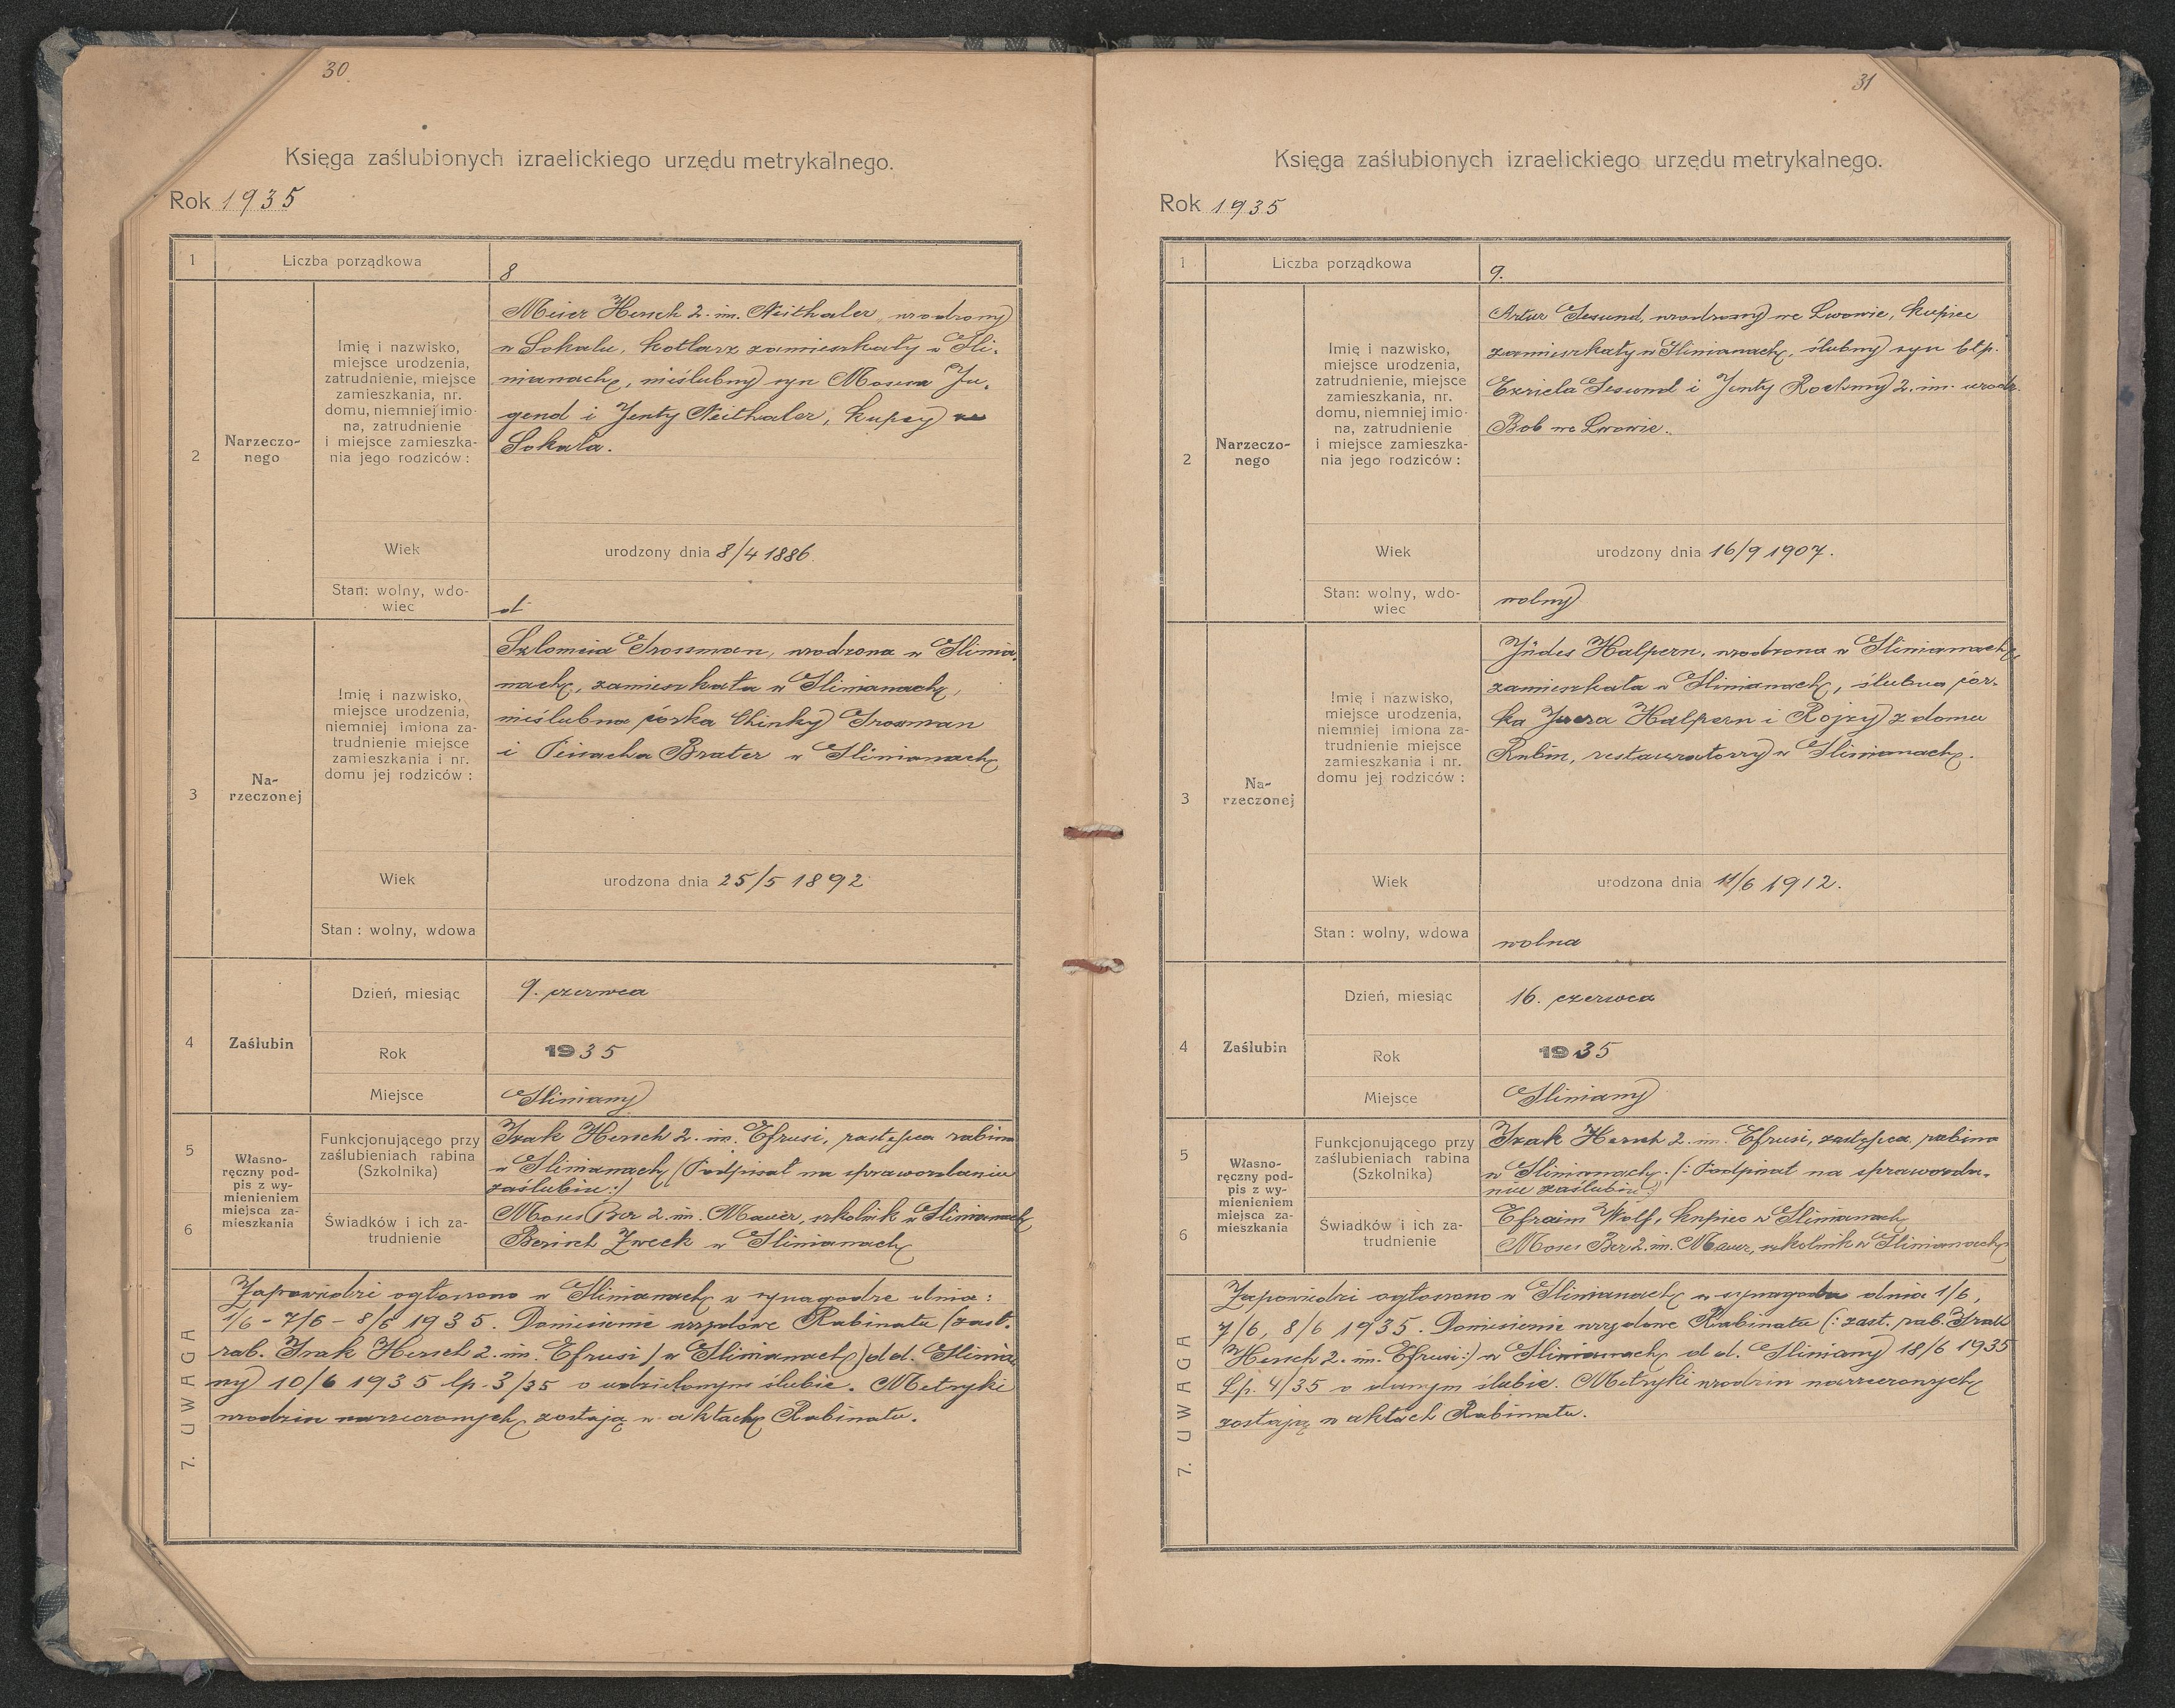 30.
Księga zaślubionych izraelickiego urzędu metrykalnego.
Rok 1935
1
Liczba porządkowa
8
2
Narzeczo-
nego
Imię i nazwisko,
miejsce urodzenia,
zatrudnienie, miejsce
zamieszkania, nr.
domu, niemniej imio-
na, zatrudnienie
i miejsce zamieszka-
nia jego rodziców :
Meier Hersch 2. im. Neithaler, urodzony
w Sokalu, kotlarz zamieszkały w Gli-
nianach, nieślubny syn Mosesa Ju-
gend i Jenty Neithaler, kupcy
Sokala.
Wiek
urodzony dnia 8/4 1886.
Stan: wolny, wdo-
wiec
3
Na-
rzeczonej
Imię i nazwisko,
miejsce urodzenia,
niemniej imiona za-
trudnienie miejsce
zamieszkania i nr.
domu jej rodziców :
Szlomcia Grossman, urodzona w Glinia-
nach, zamieszkała w Glinianach,
nieślubna córka Chinky Grossman
i Peisacha Brater w Glinianach
Wiek
urodzona dnia 25/5 1892
Stan : wolny, wdowa
4
Zaślubin
Dzień, miesiąc
9. czerwca
Rok
1935
Miejsce
Gliniany
5
Własno-
ręczny pod-
pis z wy-
mienieniem
miejsca za-
mieszkania
Funkcjonującego przy
zaślubieniach rabina
(Szkolnika)
Izak Hersch 2. im. Efrusi, zastępca rabina
w Glinianach (Podpisał na sprawozdaniu
zaślubin:)
6
Świadków i ich za-
trudnienie
Moses Ber 2. im. Mauer, szkolnik w Glinianach
Berisch Zweck w Glinianach
7. UWAGA
Zapowiedzi ogłoszono w Glinianach w synagodze dnia:
1/6 - 7/6 - 8/6 1935. Doniesienie urzędowe Rabinatu (zast.
rab. Izak Hersch 2. im. Efrusi) w Glinianach) dd. Glinia
ny 10/6 1935 lp. 3/35 o udzielonym ślubie. Metryki
urodzin narzeczonych zostają w aktach Rabinatu.
31
Księga zaślubionych izraelickiego urzędu metrykalnego.
Rok 1935
1
Liczba porządkowa
9.
2
Narzeczo-
nego
Imię i nazwisko,
miejsce urodzenia,
zatrudnienie, miejsce
zamieszkania, nr.
domu, niemniej imio-
na, zatrudnienie
i miejsce zamieszka-
nia jego rodziców :
Artur Gesund, urodzony we Lwowie, kupiec
zamieszkały w Glinianach, ślubny syn błp.
Ezriela Gesund i Jenty Rochmy 2. im. urodz.
Bob we Lwowie.
Wiek
urodzony dnia 16/9 1907.
Stan: wolny, wdo-
wiec
wolny
3
Na-
rzeczonej
Imię i nazwisko,
miejsce urodzenia,
niemniej imiona za-
trudnienie miejsce
zamieszkania i nr.
domu jej rodziców :
Jüdes Halpern, urodzona w Glinianach
zamieszkała w Glinianach, ślubna cór-
ka Halpern i Rojzy z domu
Rubin, restauratorzy w Glinianach.
Wiek
urodzona dnia 11/6 1912.
Stan : wolny, wdowa
wolna
4
Zaślubin
Dzień, miesiąc
16. czerwca
Rok
1935
Miejsce
Gliniany
5
Własno-
ręczny pod-
pis z wy-
mienieniem
miejsca za-
mieszkania
Funkcjonującego przy
zaślubieniach rabina
(Szkolnika)
Izak Hersch 2. im. Efrusi, zastępca rabina
w Glinianach. (: Podpisał na sprawozda-
niu zaślubin:)
6
Świadków i ich za-
trudnienie
Efraim Wolf, kupiec w Glinianach
Moses Ber 2. im. Mauer, szkolnik w Glinianach
7. UWAGA
Zapowiedzi ogłoszono w Glinianach w dnia 1/6,
7/6, 8/6 1935. Doniesienie urzędowe Rabinatu (: zast. rab. Izak
Hersch 2. im. Efrusi:) w Glinianach dd. Gliniany 18/6 1935
Lp. 4/35 o danym ślubie. Metryki urodzin narzeczonych
zostają w aktach Rabinatu.